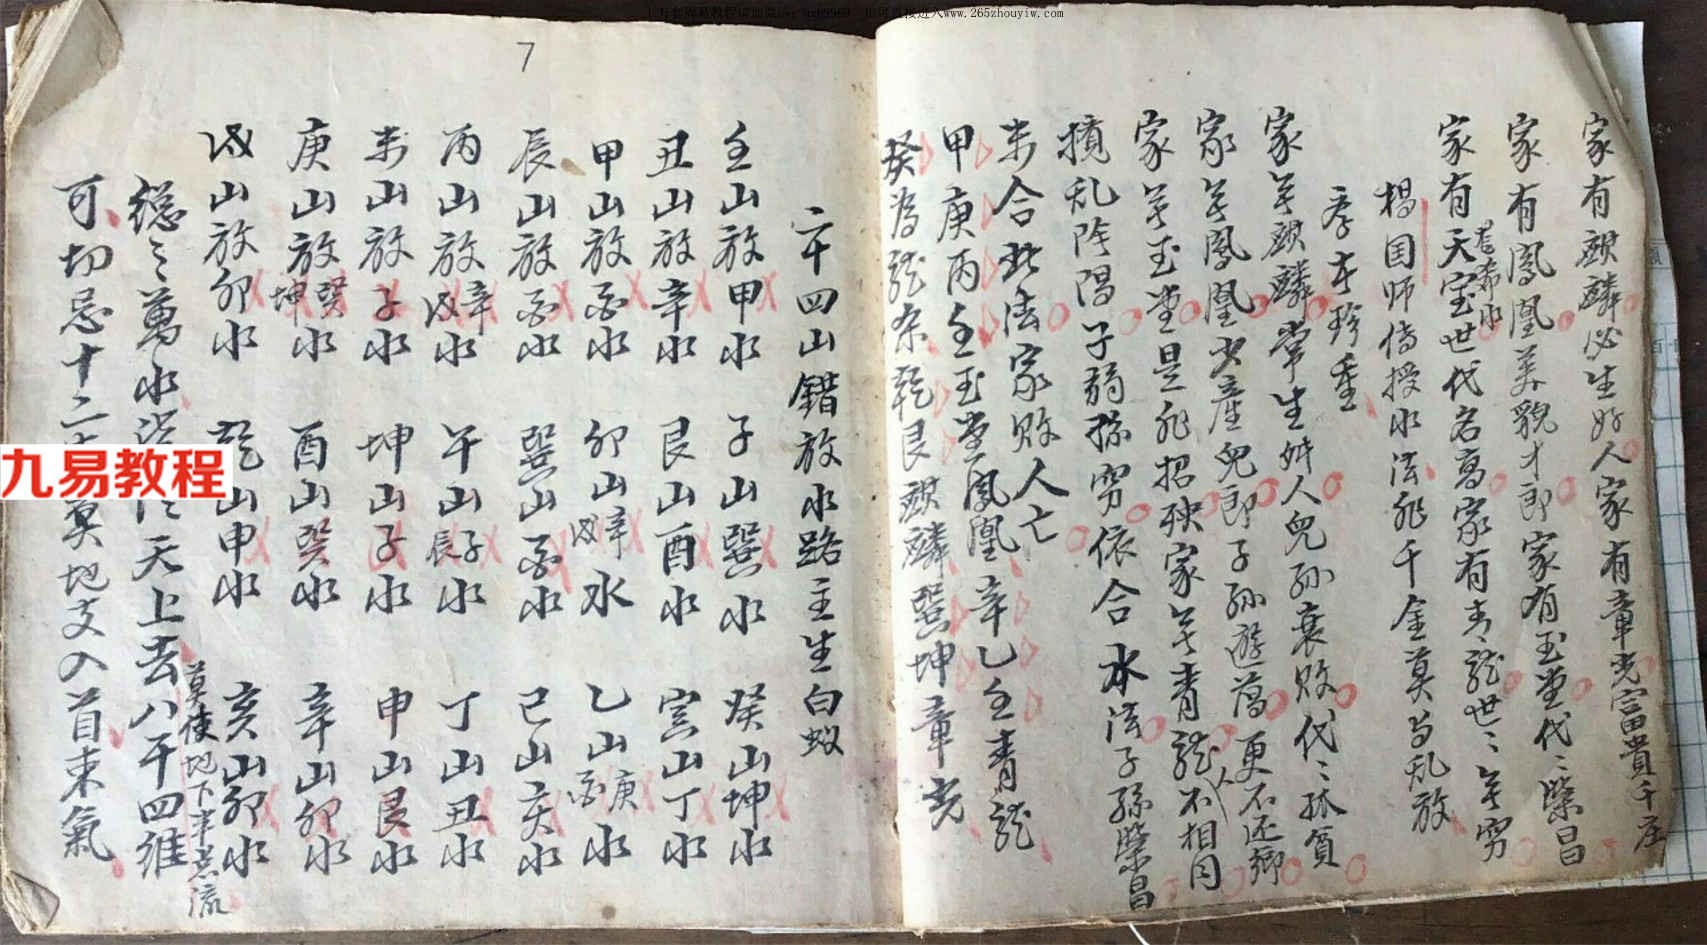 家有麒麟必生好人家有章光富貴千庄
家有鳳凰美貌才郎家有玉堂代〻榮昌
家有天宝世代名高家有青龍世〻無窮
楊国师傳授水法非千金莫与乱放
孝本珍重
家無麒麟常生奸人兒孙衰敗代〻孤貧
家無鳳凰少產兒郎子孙遊蕩更不还鄉
家無玉堂是非招殃家無青龍人不相同
攪乱陰陽子弱孫窮依合水法子孫榮昌
未合此法家敗人亡
甲庚丙壬玉堂鳳凰辛乙壬青龍
癸為龍奈乾艮麒麟巽坤章光
7
廿四山錯放水路主生白蚁
壬山放甲水 子山巽水 癸山坤水
丑山放辛水 艮山酉水 寅山丁水
甲山放酉水 卯山辛戌水 乙山庚酉水
辰山放酉水 巽山酉水 巳山亥水
丙山放辛戌水 午山子辰水 丁山丑水
未山放子水 坤山子水 申山艮水
庚山放巽坤水 酉山癸水 辛山卯水
戌山放卯水 乾山申水 亥山卯水
莫使地下半点流
總〻萬水 天上去八干四維
可切忌十二 莫地支入首来氣
九易教程
www.265zhouyiw.com